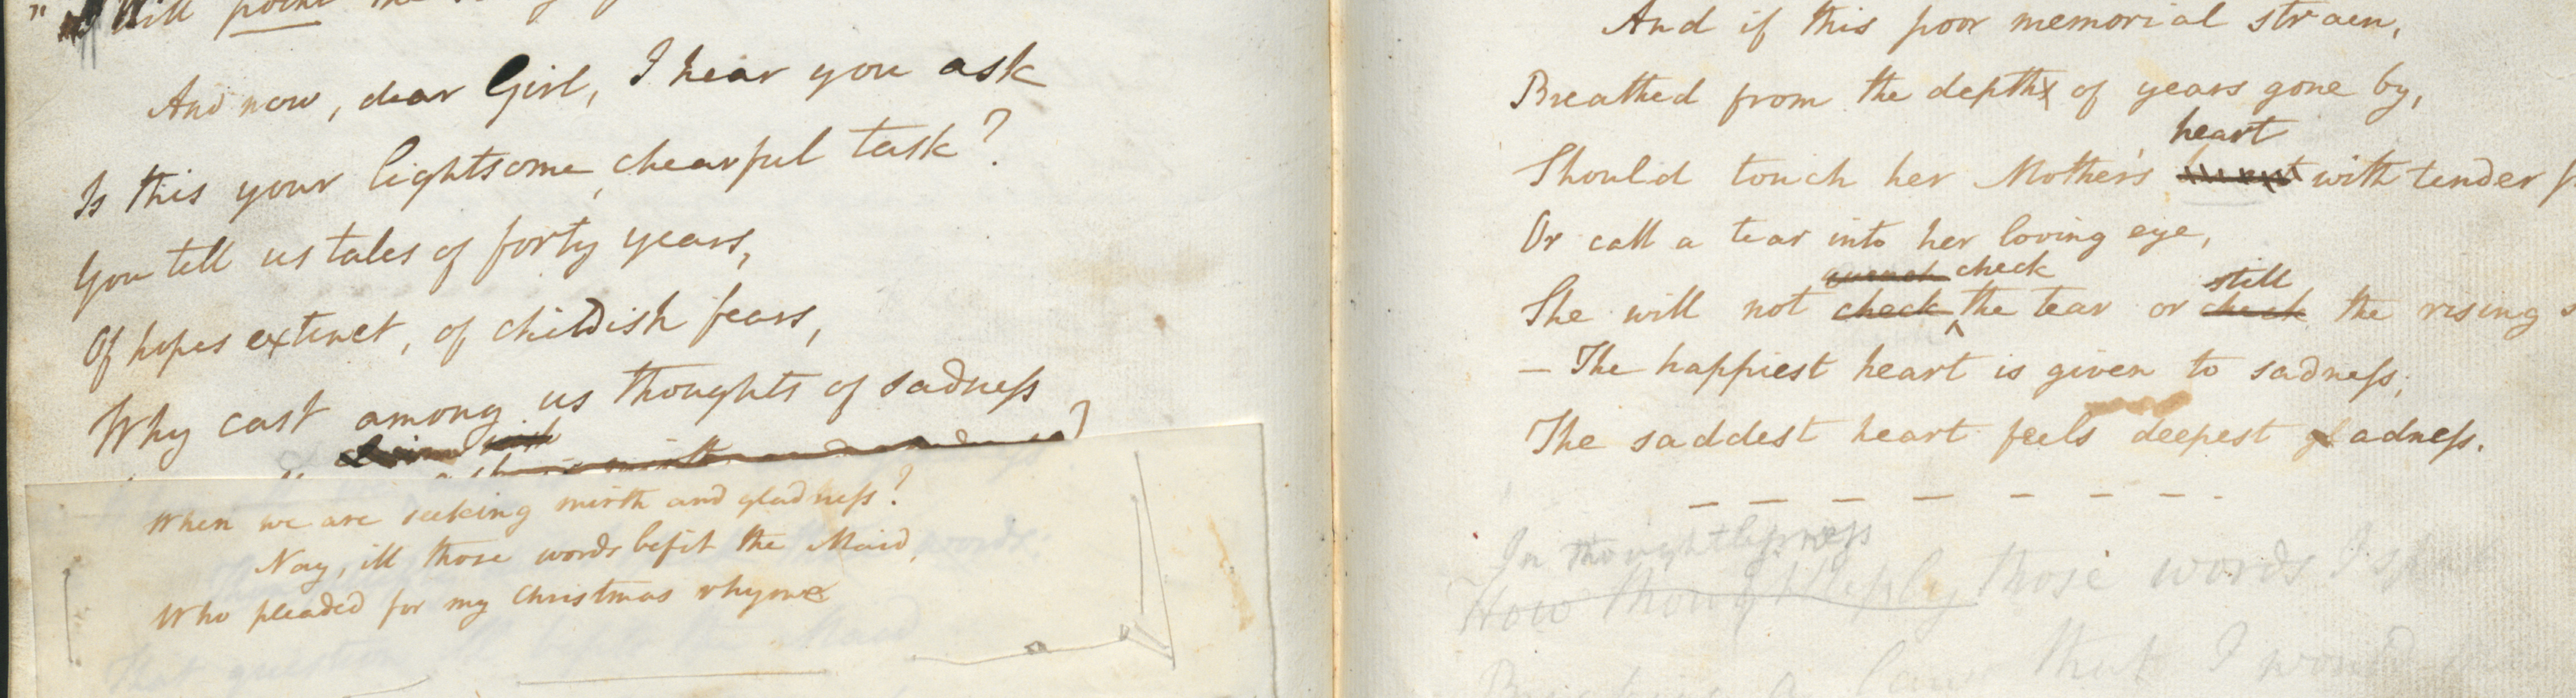 " Will point the
And now, dear Girl, I hear you ask
Is this your lightsome, chearful task?
You tell us tales of forty years,
Of hopes extinct, of childish fears,
Why cast among us thoughts of sadness
When we are seeking mirth and gladness?
Nay, ill those words befit the Maid,
Who pleaded for my Christmas rhyme
And if this poor memorial strain,
Breathed from the depth of years gone by,
heart
Should touch her Mother's with tender
Or call a tear into her loving eye,
quench check still
She will not check the tear or check the rising
— The happiest heart is given to sadness;
The saddest heart feels deepest gladness.
In thoughtlessness
How thoughtlessly those words I
that I would